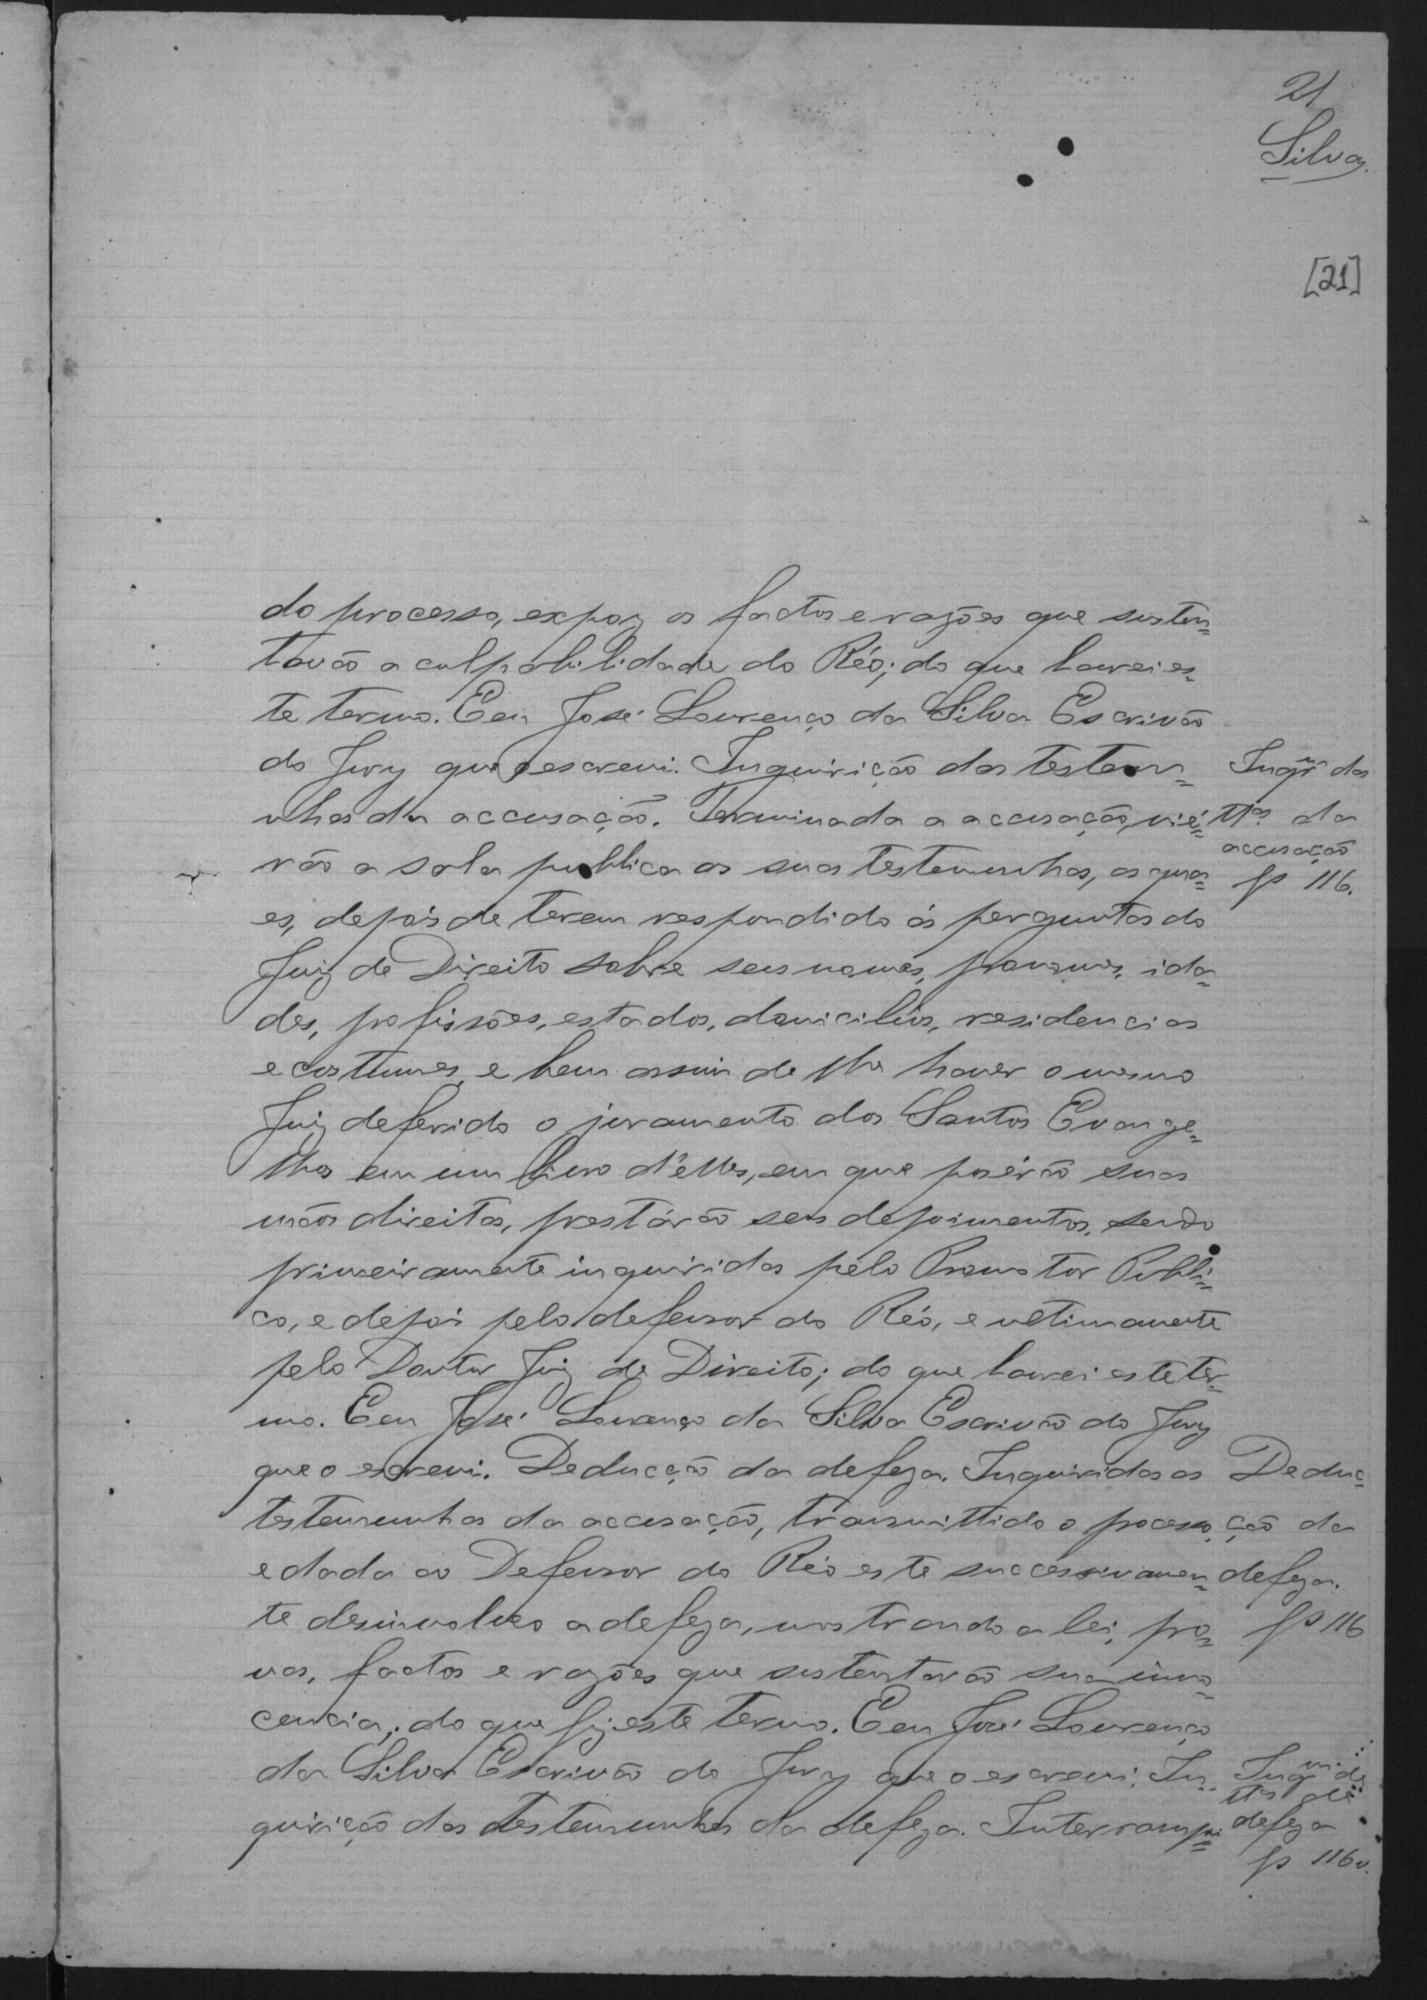 21
Silva
[21]
do processo, expoz os factos e razões que susten=
tavão a culpabilidade do Réo; do que lavrei es=
te termo. Eeu José Lourenço da Silva Escrivão
do Jury que o escrevi. Inquirição das testem=
unhas da accusação. Terminada a accusação, viē=
rão a sala publica as suas testemunhas, as qua=
es, depois de terem respondido ás perguntas do
Juiz de Direito sobre seus nomes, pronomes, ida=
des, profissões, estados, domicilios, residencias
e costumes, e bem assim de lhe haver o mesmo
Juiz deferido o juramento dos Santos Evange=
lhos em um livro d'elles, em que poserão suas
mãos direitas, prestárão seus depoimentos, sendo
primeiramente inquiridas pelo Promotor Publi=
co, e depois pelo defensor do Réo, e ultimamente
pelo Doutor Juiz de Direito; do que lavrei este ter=
mo. Eeu José Lourenço da Silva Escrivão do Jury
que o escrevi. Deducção da defeza. Inquiridas as
testemunhas da accusação, transmittido o processo,
e dada ao Defensor do Réo este successivamen=
te desinvolveo a defeza, mostrando a lei, pro=
vas, factos e razões que sustentavão sua inno=
cencia; do que fiz este termo. Eeu José Lourenço
da Silva Escrivão do Jury que o escrevi. In=
quirição das testemunhas da defeza. Interrompi=
Inqr.m das
ttas. da
accusação
fs 116.
Deduc=
ção da
defeza.
fs 116
Inqr.m de
ttas de
defeza
fs 116v.